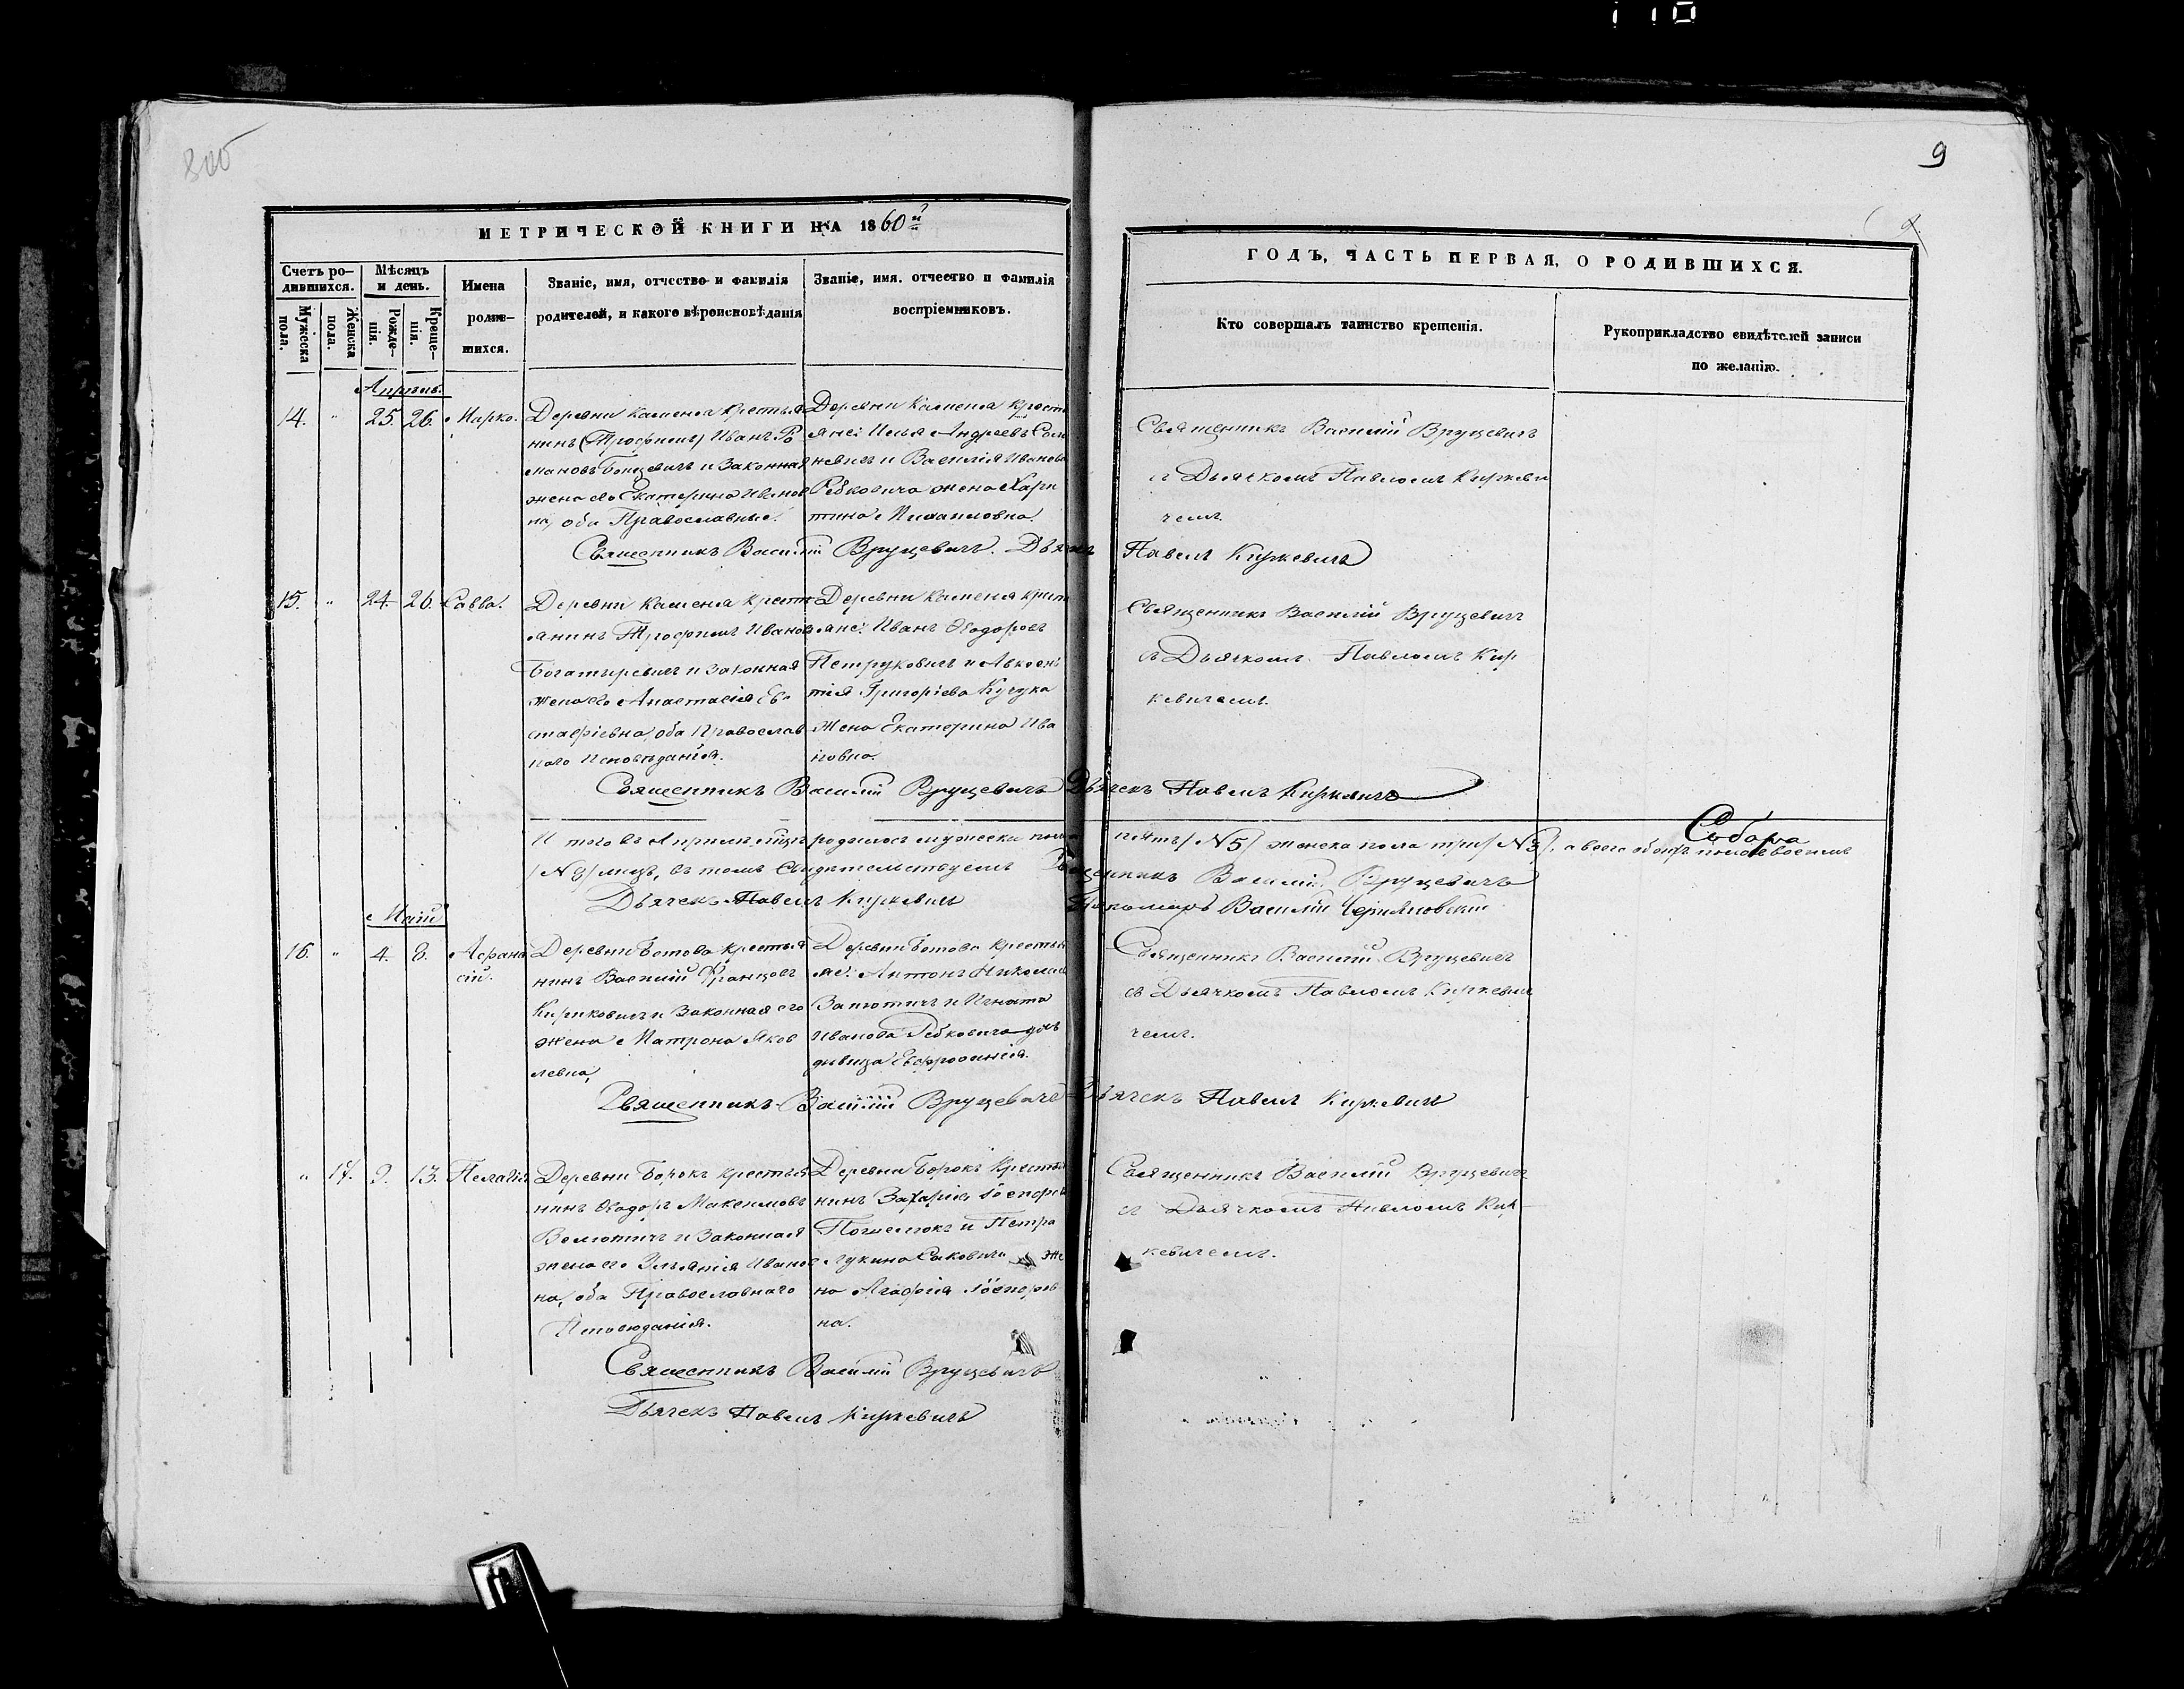 110
800
9
МЕТРИЧЕСКОЙ КНИГИ НА 1860й
ГОДЪ, ЧАСТЬ ПЕРВАЯ, О РОДИВШИХСЯ.
Счетъ ро-
дившихся.
Мужеска пола.
Женска пола.
Мѣсяцъ
и день.
Рожде-
нія.
Креще-
нія.
Имена
родив-
шихся.
Званіе, имя, отчество и фамилія
родителей, и какого вѣроисповѣданія
Званіе, имя, отчество и фамилія
воспріемниковъ.
Кто совершалъ таинство крещенія.
Рукоприкладство свидѣтелей записи
по желанію.
Апрѣль.
14. " 25. 26. Марко.
Деревни Каменя крестья
нинъ (Трофимъ) Иванъ Ро
мановъ и Законная
жена его Екатерина Иванов
на, оба Православные.
Деревни Каменя крестъ
яне: Илья Андреевъ
и Василія Иванова
Рабковича жена Хари
тина Михаиловна.
Священникъ Василій Вруцевичъ
съ Дьячкомъ Павломъ Киркеви
чемъ.
Священникъ Василій Вруцевичъ. Дьячекъ Павелъ Киркевичъ
15. " 24. 26. Савва.
Деревни Каменя крестъ
янинъ Трофимъ Ивановъ
Богатыревичъ и законная
жена его Анастасія Ев-
стафіевна, оба Православ
наго исповѣданія.
Деревни Каменя крестъ
яне: Иванъ Ѳеодоровъ
Петруковичъ и Авксен
тія Григоріева Кучука
жена Екатерина Ива
новна.
Священникъ Василій Вруцевичъ
съ Дьячкомъ Павломъ Кир
кевичемъ.
Священникъ Василій Вруцевичъ Дьячекъ Павелъ Киркевичъ
Итого въ Апрѣлѣ мцѣ родилось мужеска пола пять /№5/ женска пола три /№3/. а всего обоего пола восемь
/№8/ лицъ, въ томъ свидѣтельствуемъ Священникъ Василій Вруцевичъ
Собора
Дьячекъ Павелъ Киркевичъ Пономаръ Василій Черняковскій
Май
16. " 4. 8. Афана
сій.
Деревни Ботова крестья
нинъ Василій Францовъ
Кириковичъ и Законная его
жена Матрона Яков
левна,
Деревни Ботова крестья
не: Антонъ Николаевъ
Запотичъ и Игната
Иванова Рабковича дочь
дѣвица Евфросинія.
Священникъ Василій Вруцевичъ
съ Дьячкомъ Павломъ Киркеви
чемъ.
Священникъ Василій Вруцевичъ Дьячекъ Павелъ Киркевичъ
" 17. 9. 13. Пелагія.
Деревни Борокъ крестья
нинъ Ѳеодоръ Максимовъ
Волютичъ и Законная
жена его Ульянія Иванов
на, оба Православнаго
Исповѣданія.
Деревни Борокъ Крестья
нинъ Захарія
и Петра
Лукина Саковича же
на Агафія
на.
Священникъ Василій Вруцевичъ
съ Дьячкомъ Павломъ Кир-
кевичемъ.
Священникъ Василій Вруцевичъ
Дьячекъ Павелъ Киркевичъ